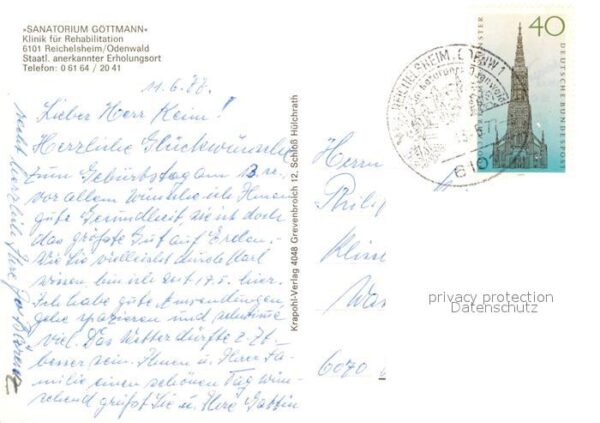 »SANATORIUM GÖTTMANN«
Klinik für Rehabilitation
6101 Reichelsheim/Odenwald
Staatl. anerkannter Erholungsort
Telefon: 0 61 64 / 20 41
11.6.77.
Lieber Herr Keim!
Herzliche Glückwünsche
zum Geburtstag am 13. ds.
vor allem wünsche ich Ihnen
gute Gesundheit, sie ist doch
das größte Gut auf Erden.
Wie Sie vielleicht durch
wissen bin ich seit 17.5. hier.
Ich habe gute Anwendungen,
gehe spazieren und schwimme
viel. Das Wetter dürfte z.Zt.
besser sein. Ihnen u. Ihrer Fa-
milie einen schönen Tag wün-
schend grüßt Sie u. Ihre Gattin
recht herzlich Ihre
Krapohl-Verlag 4048 Grevenbroich 12, Schloß Hülchrath
40
DEUTSCHE BUNDESPOST
REICHELSHEIM, ODENW 1
610
Herrn
Phil
Wa
6070
privacy protection
Datenschutz